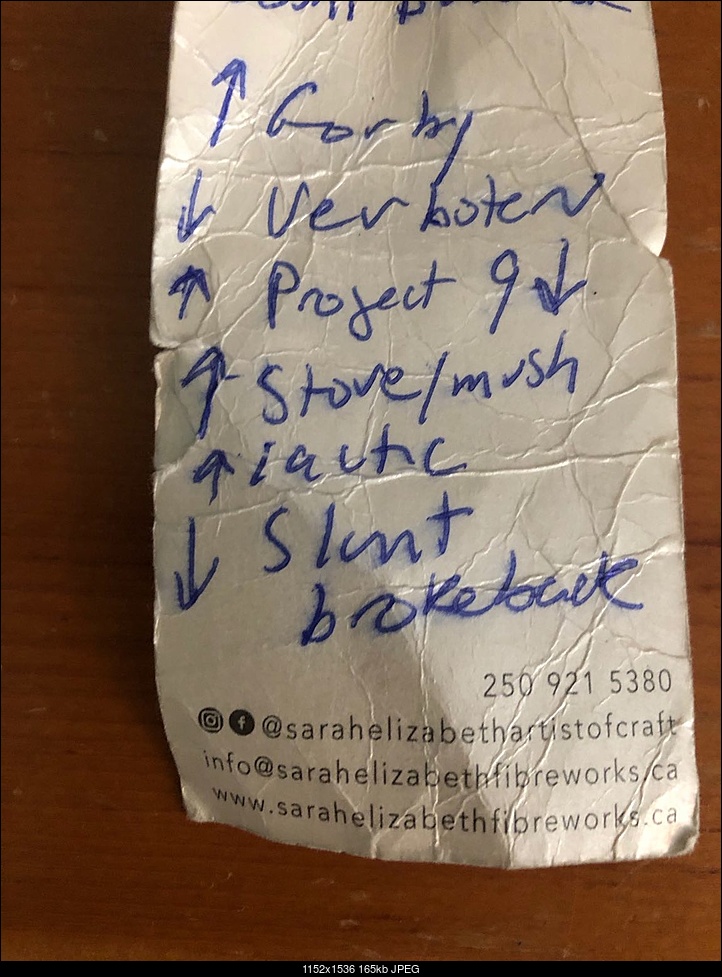 ↑ Gorby
↓ Verboten
↑ Project 9 ↓
↑ Stove/mush
↑ iactic
↓ Slunt
brokeback
250 921 5380
@sarahelizabethartistofcraft
info@sarahelizabethfibreworks.ca
www.sarahelizabethfibreworks.ca
1152x1536 165kb JPEG